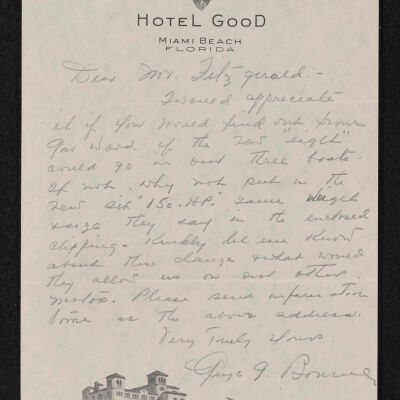 HOTEL GOOD
MIAMI BEACH
FLORIDA
Dear Mr. Fitzgerald:-
I would appreciate
it if you would find out from
Gar Wood if the new "eight"
could go in our three boats.
If not, why not put in the
new six "150. HP." same weight
& size they say in the enclosed
clipping. Kindly let me know
about this change & what would
they allow us on our other
motors. Please send information
to me at the above address.
Very Truly Yours.